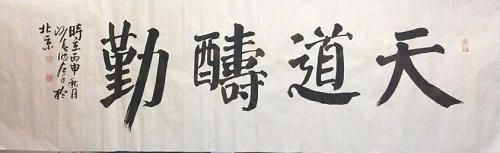 天道醻勤
時在丙申秋月
於
北京